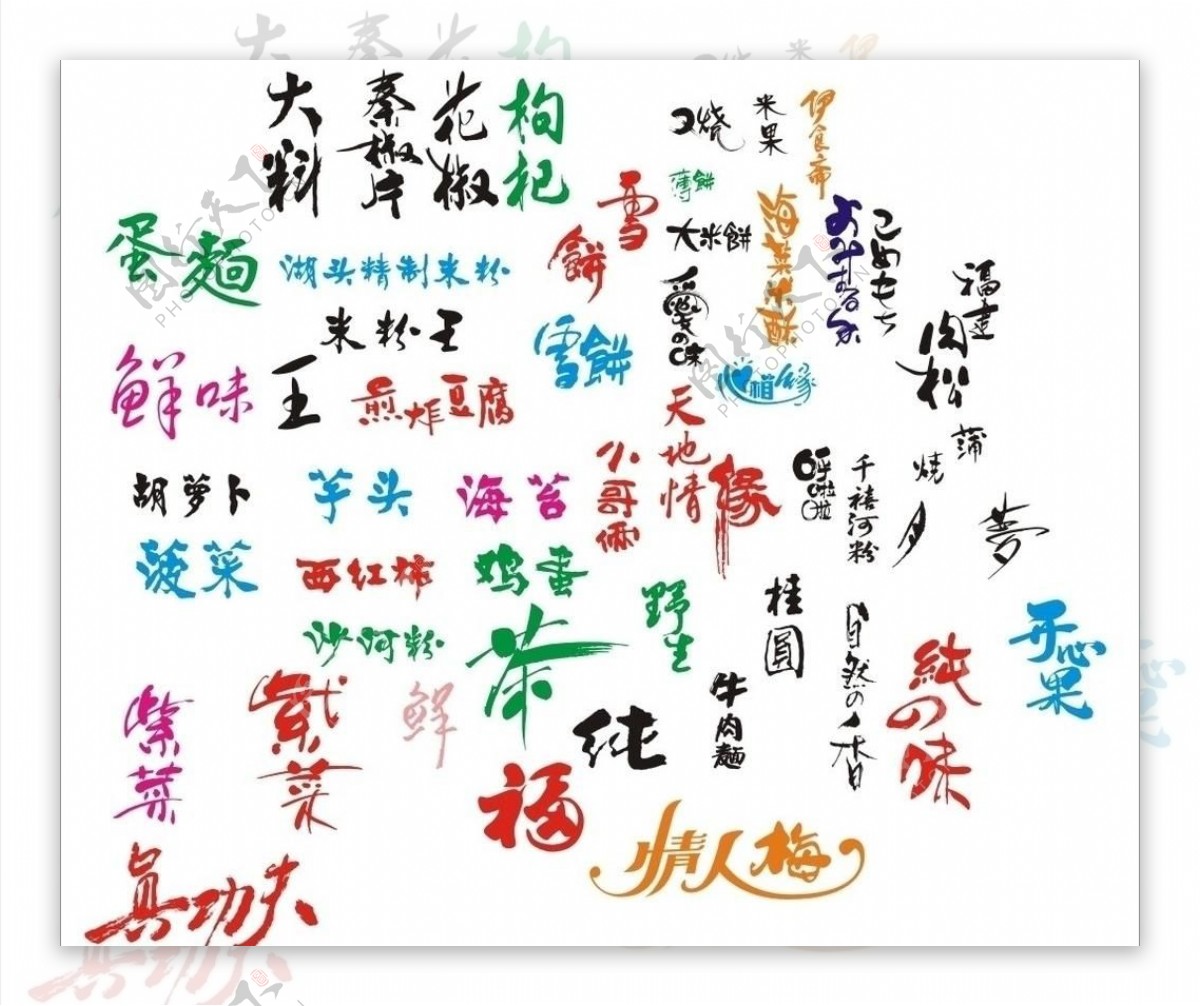 大料
秦椒片
花椒
枸杞
口烧
米果
伊食斋
薄餅
雪餅
大米餅
海菜米酥
こめもち
蛋麵
湖头精制米粉
米粉王
愛の味
雪餅
心相缘
福建肉松
鲜味王
煎炸豆腐
天地情缘
小哥俩
胡萝卜
芋头
海苔
呼啦啦
千禧河粉
蒲烧
夕
夢
菠菜
西红柿
鸡蛋
野生
桂圓
沙河粉
茶
自然の香
純の味
开心果
紫菜
紫菜
鲜
纯
牛肉麵
福
情人梅
真功夫